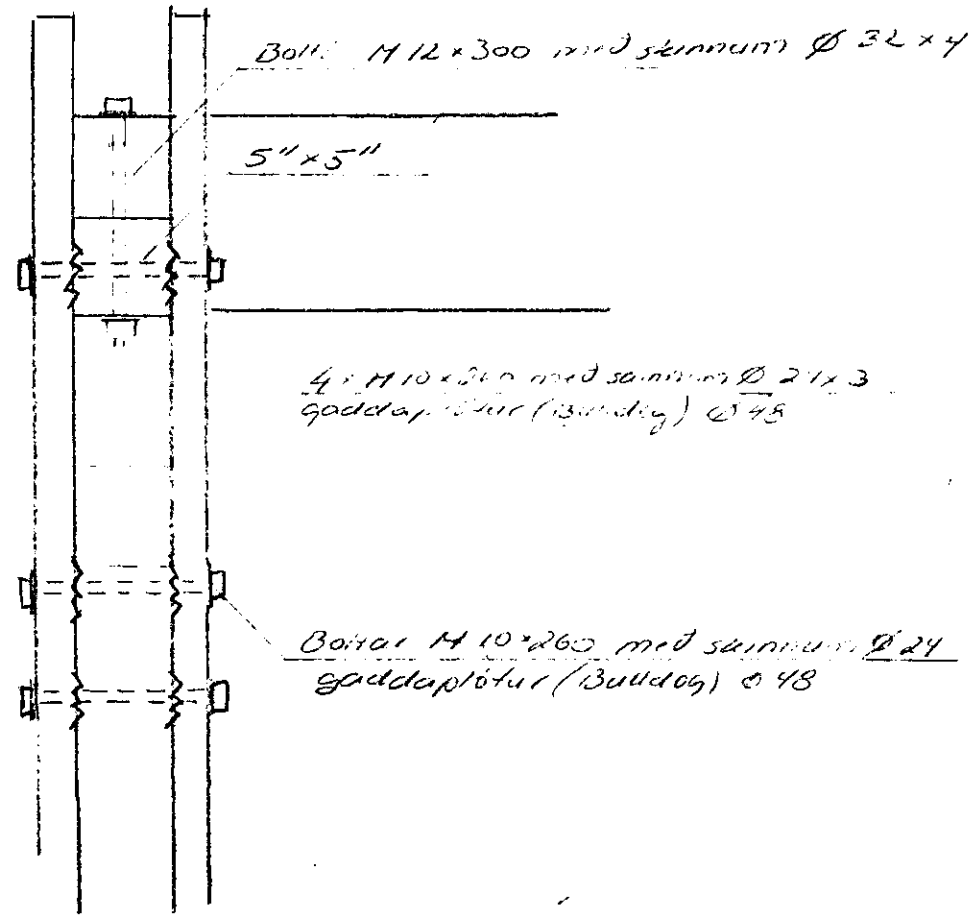 Bolti M 12 × 300 með skinnum Ø 32 × 4
5" × 5"
4 × M 10 × 260 með skinnum Ø 24 × 3
gaddaplötur (Bulldog) Ø 48
Boltar M 10 × 260 með skinnum Ø 24
gaddaplötur (Bulldog) Ø 48